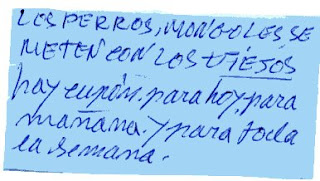 LOS PERROS, MONGOLES, SE
METEN CON LOS VIEJOS
hay cupón. para hoy, para
mañana. y para toda
la semana.